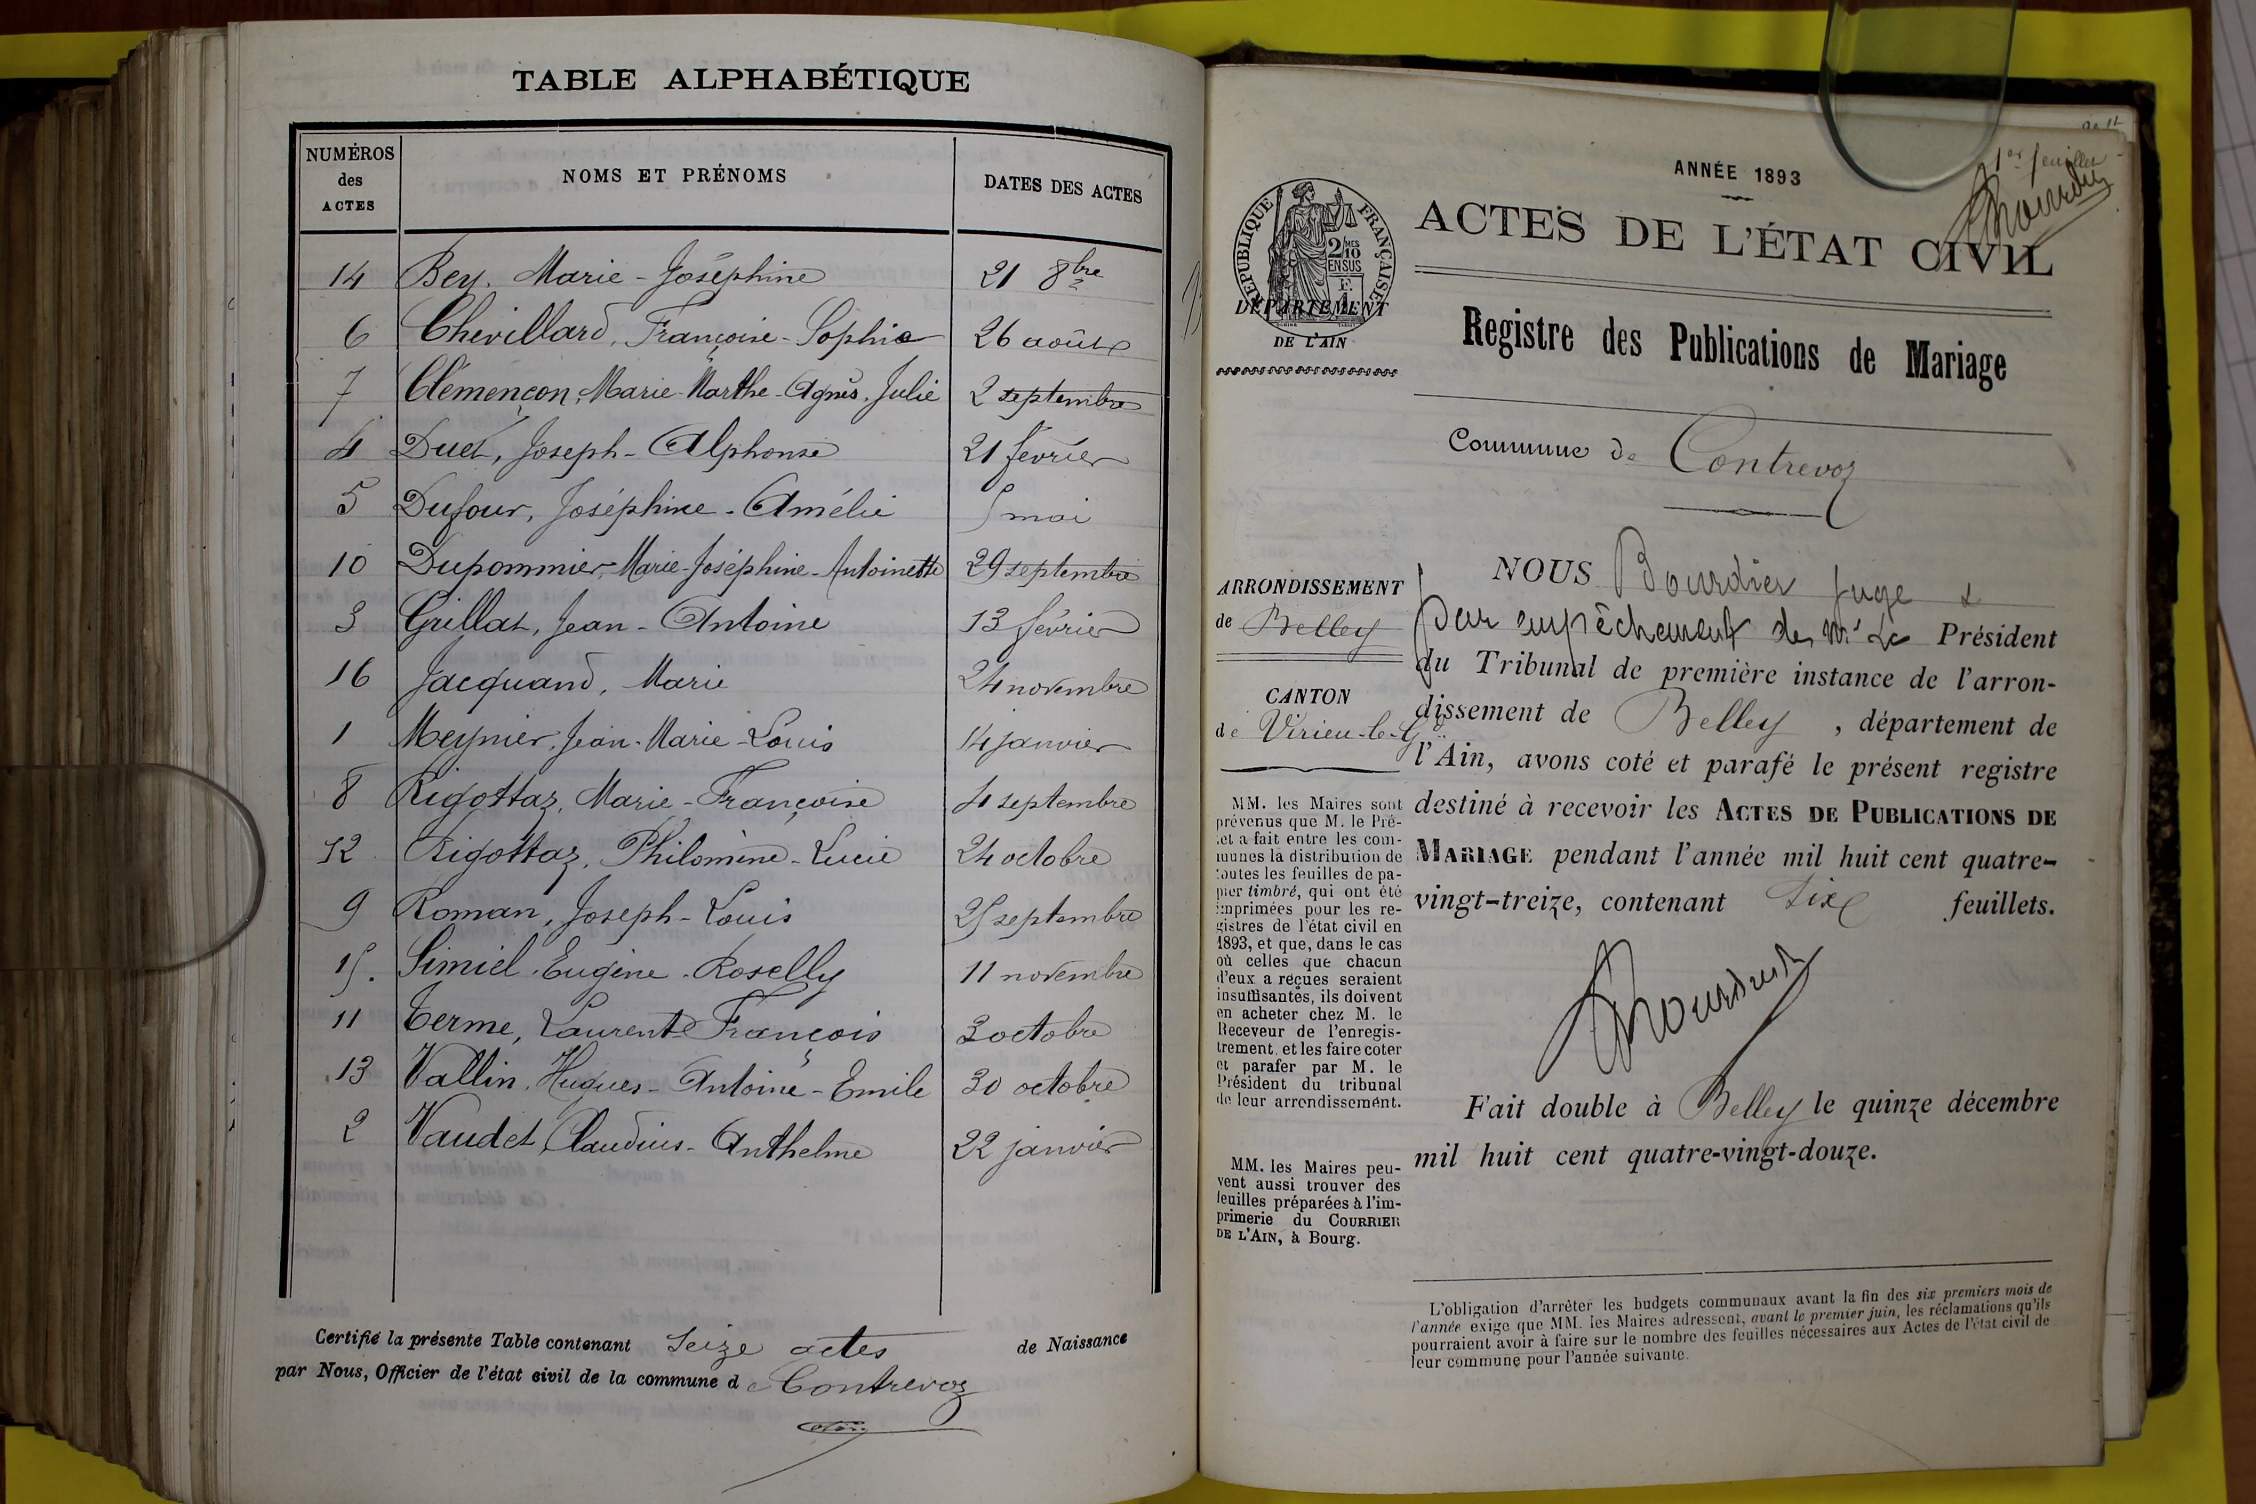 TABLE ALPHABÉTIQUE
NUMÉROS des ACTES NOMS ET PRÉNOMS DATES DES ACTES
14 Bey, Marie-Joséphine 21 8bre
6 Chevillard, Françoise-Sophie 26 août
7 Clémençon, Marie-Marthe-Agnès-Julie 2 septembre
4 Duet, Joseph-Alphonse 21 février
5 Dufour, Joséphine-Amélie 5 mai
10 Dupommier, Marie-Joséphine-Antoinette 29 septembre
3 Grillat, Jean-Antoine 13 février
16 Jacquand, Marie 24 novembre
1 Meynier, Jean-Marie-Louis 14 janvier
8 Rigottaz, Marie-Françoise 4 septembre
12 Rigottaz, Philomène-Lucie 24 octobre
9 Roman, Joseph-Louis 25 septembre
15. Simiel, Eugène-Roselly 11 novembre
11 Terme, Laurent-François 3 octobre
13 Vallin, Hugues-Antoine-Emile 30 octobre
2 Vaudet, Claudius-Anthelme 22 janvier
Certifié la présente Table contenant Seize actes de Naissance
par Nous, Officier de l'état civil de la commune de Contrevoz
1er feuillet
Bourdier
ANNÉE 1893
ACTES DE L'ÉTAT CIVIL
RÉPUBLIQUE FRANÇAISE
2 MES 10
EN SUS
DÉPARTEMENT
DE L'AIN
Registre des Publications de Mariage
Commune de Contrevoz
ARRONDISSEMENT
de Belley
CANTON
de Virieu-le-Gd
MM. les Maires sont
prévenus que M. le Pré-
fet a fait entre les com-
munes la distribution de
toutes les feuilles de pa-
pier timbré, qui ont été
imprimées pour les re-
gistres de l'état civil en
1893, et que, dans le cas
où celles que chacun
d'eux a reçues seraient
insuffisantes, ils doivent
en acheter chez M. le
Receveur de l'enregis-
trement, et les faire coter
et parafer par M. le
Président du tribunal
de leur arrondissement.
MM. les Maires peu-
vent aussi trouver des
feuilles préparées à l'im-
primerie du COURRIER
DE L'AIN, à Bourg.
NOUS Bourdier Juge
par empêchement de Mr Le Président
du Tribunal de première instance de l'arron-
dissement de Belley, département de
l'Ain, avons coté et parafé le présent registre
destiné à recevoir les ACTES DE PUBLICATIONS DE
MARIAGE pendant l'année mil huit cent quatre-
vingt-treize, contenant six feuillets.
Bourdier
Fait double à Belley le quinze décembre
mil huit cent quatre-vingt-douze.
L'obligation d'arrêter les budgets communaux avant la fin des six premiers mois de
l'année exige que MM. les Maires adressent, avant le premier juin, les réclamations qu'ils
pourraient avoir à faire sur le nombre des feuilles nécessaires aux Actes de l'état civil de
leur commune pour l'année suivante.